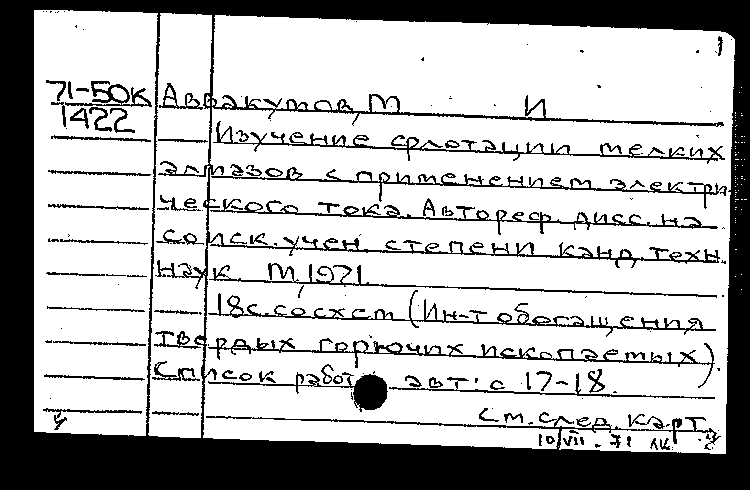 1
71-50К Аввакумов, М И
1422
Изучение флотации мелких
алмазов с применением электри-
ческого тока. Автореф. дисс. на
соиск. учен. степени канд. техн.
наук. М, 1971.
18с. сосхст (Ин-т обогащения
твердых горючих ископаемых).
Список работ авт: с 17-18.
См. след. карт.
10/VII-71